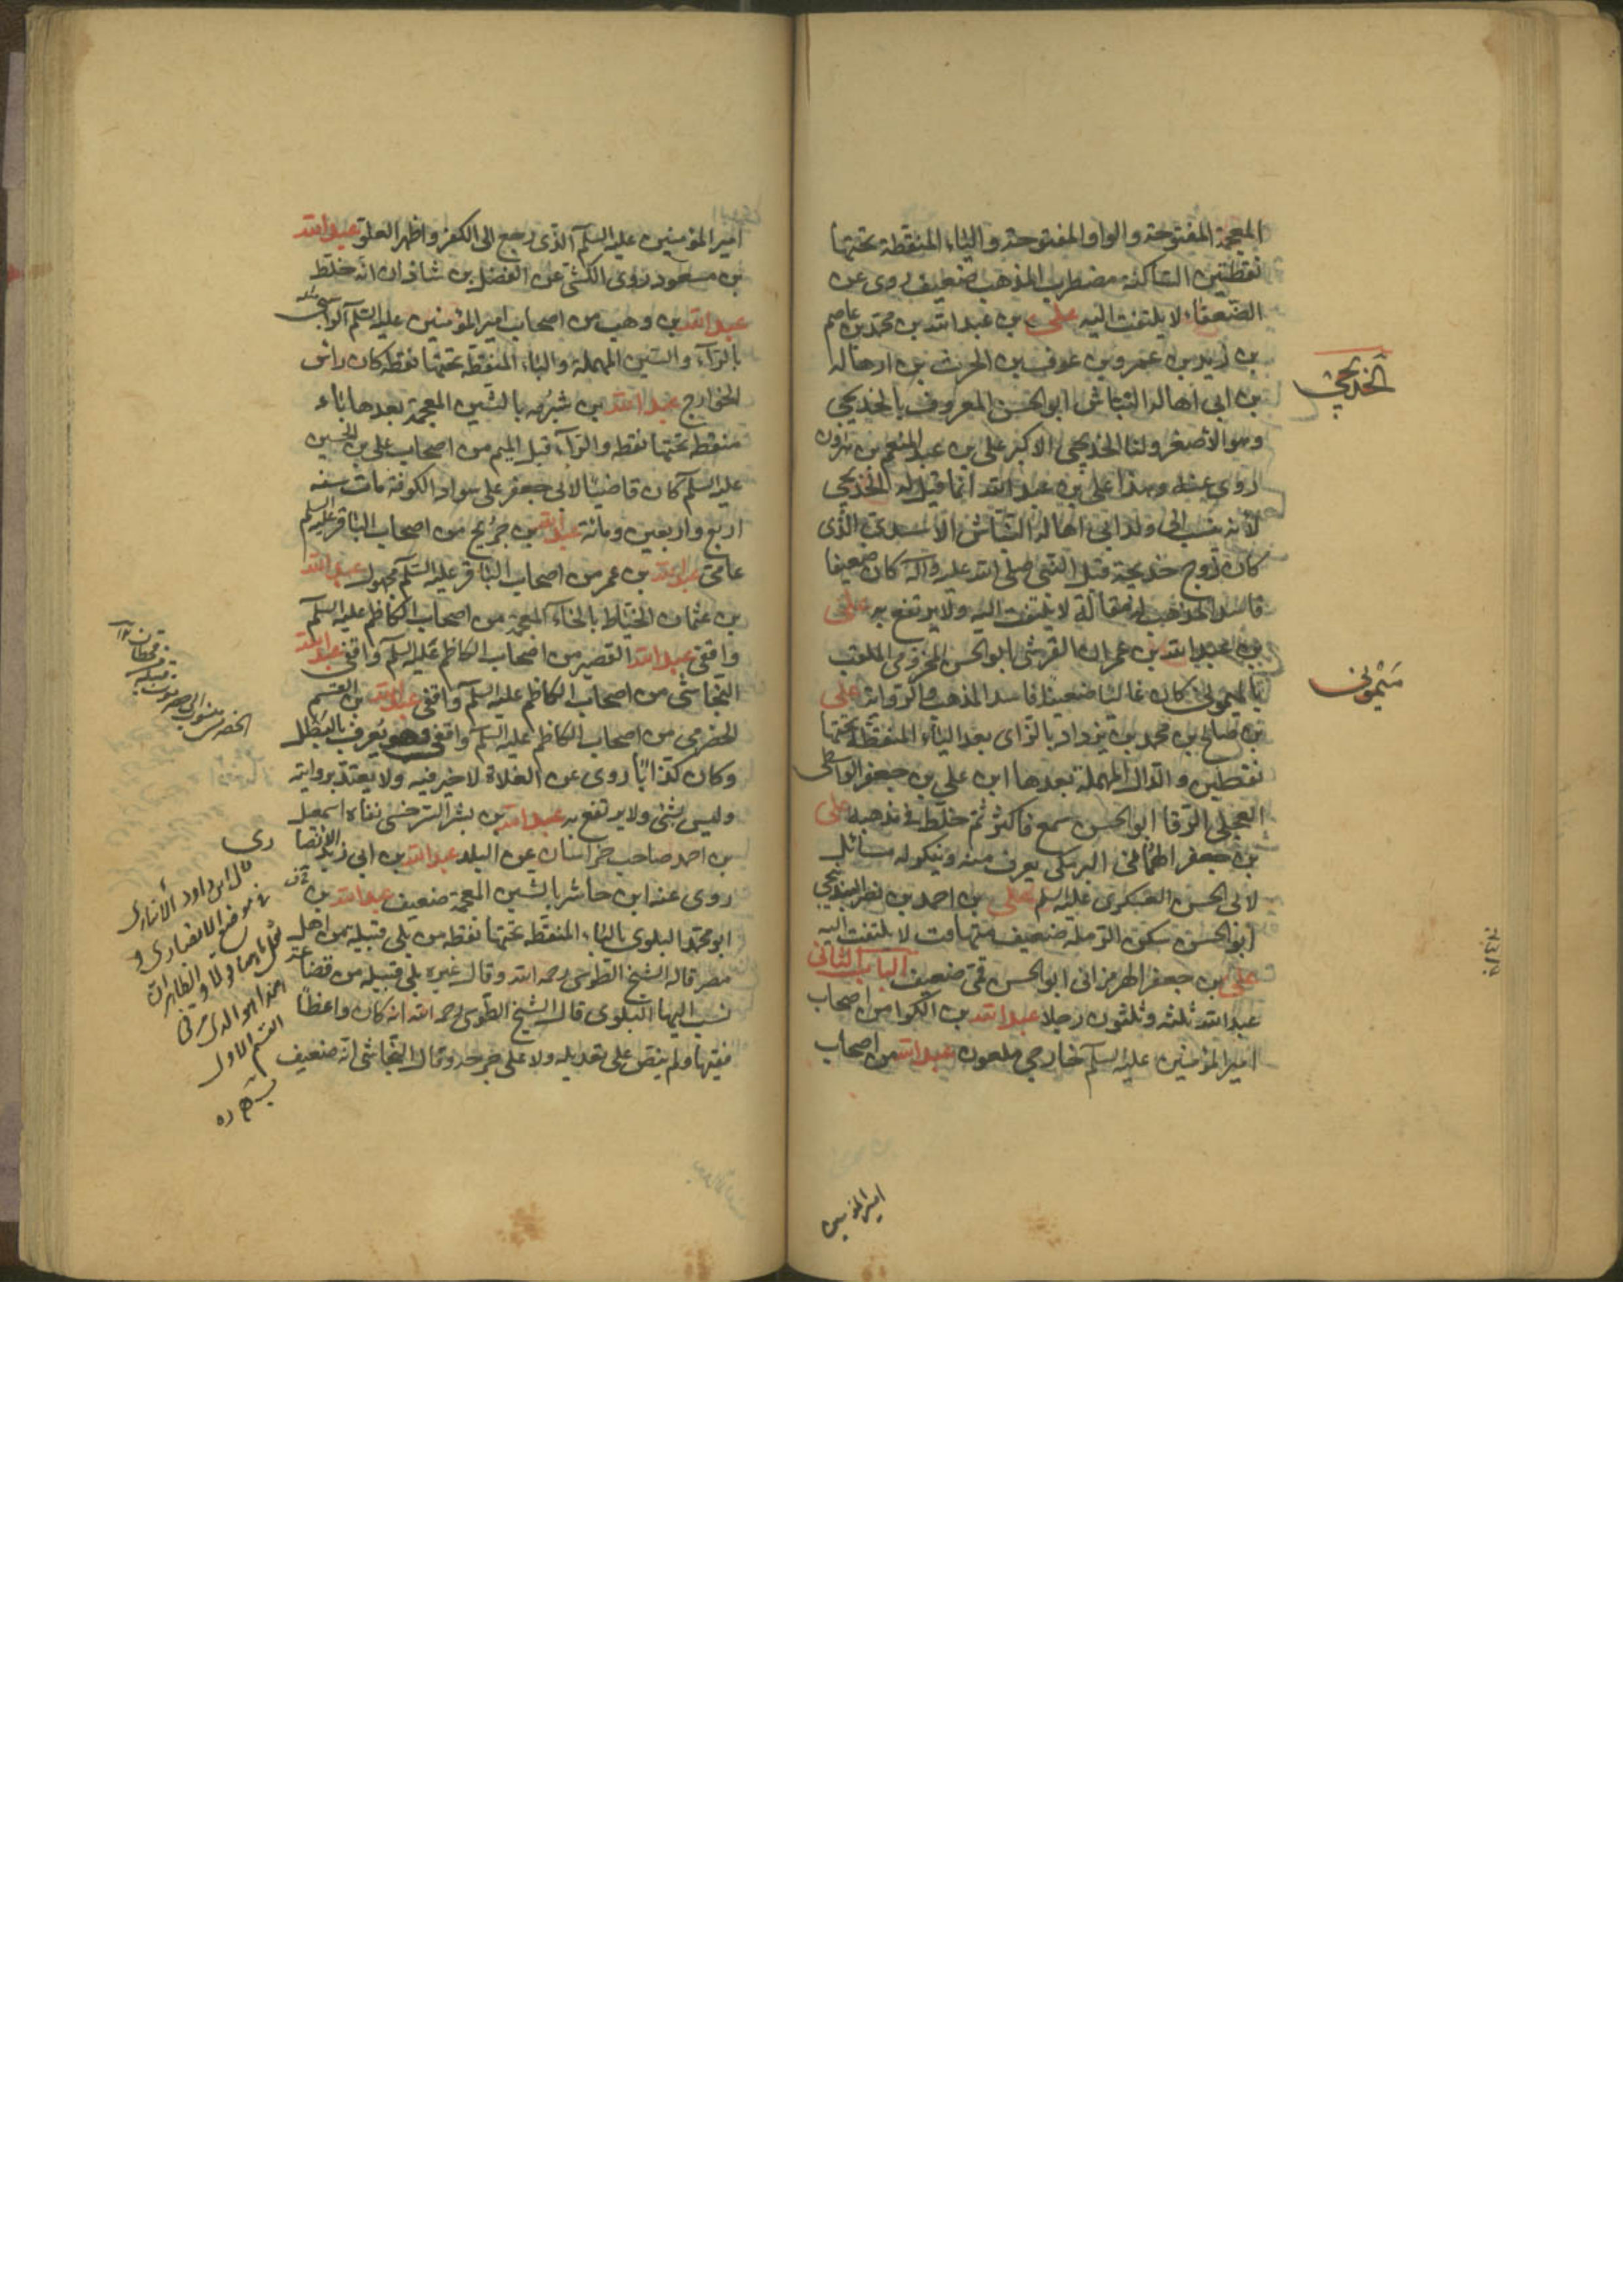 المعجمة المفتوحة والواو المفتوحة والياء المنقطة تحتها
نقطتين الساكنة مضطرب المذهب ضعيف روى عن
الضعفاء لا يلتفت اليه على بن عبد الله بن محمد بن عاصم
بن زيد بن عمرو بن عوف بن الحرث بن ابى هالة
بن ابى اهالة النباش ابو الحسن المعروف بالخديجى
وهو الاصغر ولنا الخديجى الاكبر على بن عبد المنعم بن هرون
روى عنه وهذا على بن عبد الله انما قيل له الخديجى
لانه نسب الى ولد ابى اهالة النباش الاسدى الذى
كان زوج خديجة قبل النبى صلى الله عليه وآله كان ضعيفا
فاسد المذهب له مقالة لا يلتفت اليه ولا يرتفع به على
بن عبد الله بن عمران القرشى ابو الحسن المخزومى الملقب
بالميمونى كان غاليا ضعيفا فاسد المذهب والرواية على
بن صالح بن محمد بن يزداد بالزاى بعد الياء المنقطة تحتها
نقطتين والدال المهملة بعدها ابن على بن جعفر الواسطى
العجلى الرفا ابو الحسن سمع فاكثر ثم خلط فى مذهبه على
بن جعفر الهمانى البرمكى يعرف منه وينكر له مسائل
لابى الحسن العسكرى عليه السلم على بن احمد بن نصر البندنيجى
ابو الحسن سكن الرملة ضعيف متهافت لا يلتفت اليه
على بن جعفر الهرمزانى ابو الحسن قمى ضعيف الباب الثانى
عبد الله ثلثة وثلثون رجلا عبد الله بن الكوا من اصحاب
امير المؤمنين عليه السلم خارجى ملعون عبد الله من اصحاب
الخديجى
ميمونى
امير المؤمنين
امير المؤمنين عليه السلم الذى رجع الى الكفر واظهر الغلو عبد الله
بن مسعود روى الكشى عن الفضل بن شاذان انه خلط
عبد الله بن وهب من اصحاب امير المؤمنين عليه السلم الراسبى
بالراء والسين المهملة والباء المنقطة تحتها نقطة كان راس
الخوارج عبد الله بن شبرمه بالشين المعجمة بعدها باء
منقطة تحتها نقطة والراء قبل الميم من اصحاب على بن الحسين
عليه السلم كان قاضيا لابى جعفر على سواد الكوفة مات سنة
اربع واربعين ومائة عبد الله بن جريح من اصحاب الباقر عليه السلم
عامى عبد الله بن عمر من اصحاب الباقر عليه السلم مجهول عبد الله
بن عثمان الخياط بالخاء المعجمة من اصحاب الكاظم عليه السلم
واقفى عبد الله القصير من اصحاب الكاظم عليه السلم واقفى عبد الله
النجاشى من اصحاب الكاظم عليه السلم واقفى عبد الله بن القسم
الحضرمى من اصحاب الكاظم عليه السلم واقفى وهو يعرف بالبطل
وكان كذابا روى عن الغلاة لا خير فيه ولا يعتد بروايته
وليس بشئ ولا يرتفع به عبد الله بن بشر السرخسى نفاه اسمعيل
بن احمد صاحب خراسان عن البلد عبد الله بن ابى زيد الانصا
روى عنه ابن حاشر بالشين المعجمة ضعيف عبد الله بن
ابو محمد البلوى بالباء المنقطة تحتها نقطة من بلى قبيلة من اهل
مصر قاله الشيخ الطوسى رحمه الله وقال غيره بلى قبيله من قضاعة
نسب اليها البلوى قال الشيخ الطوسى رحمه الله انه كان واعظا
فقيها ولم ينص على تعديله ولا على جرحه وقال النجاشى انه ضعيف
قال ابن داود
القسم الاول